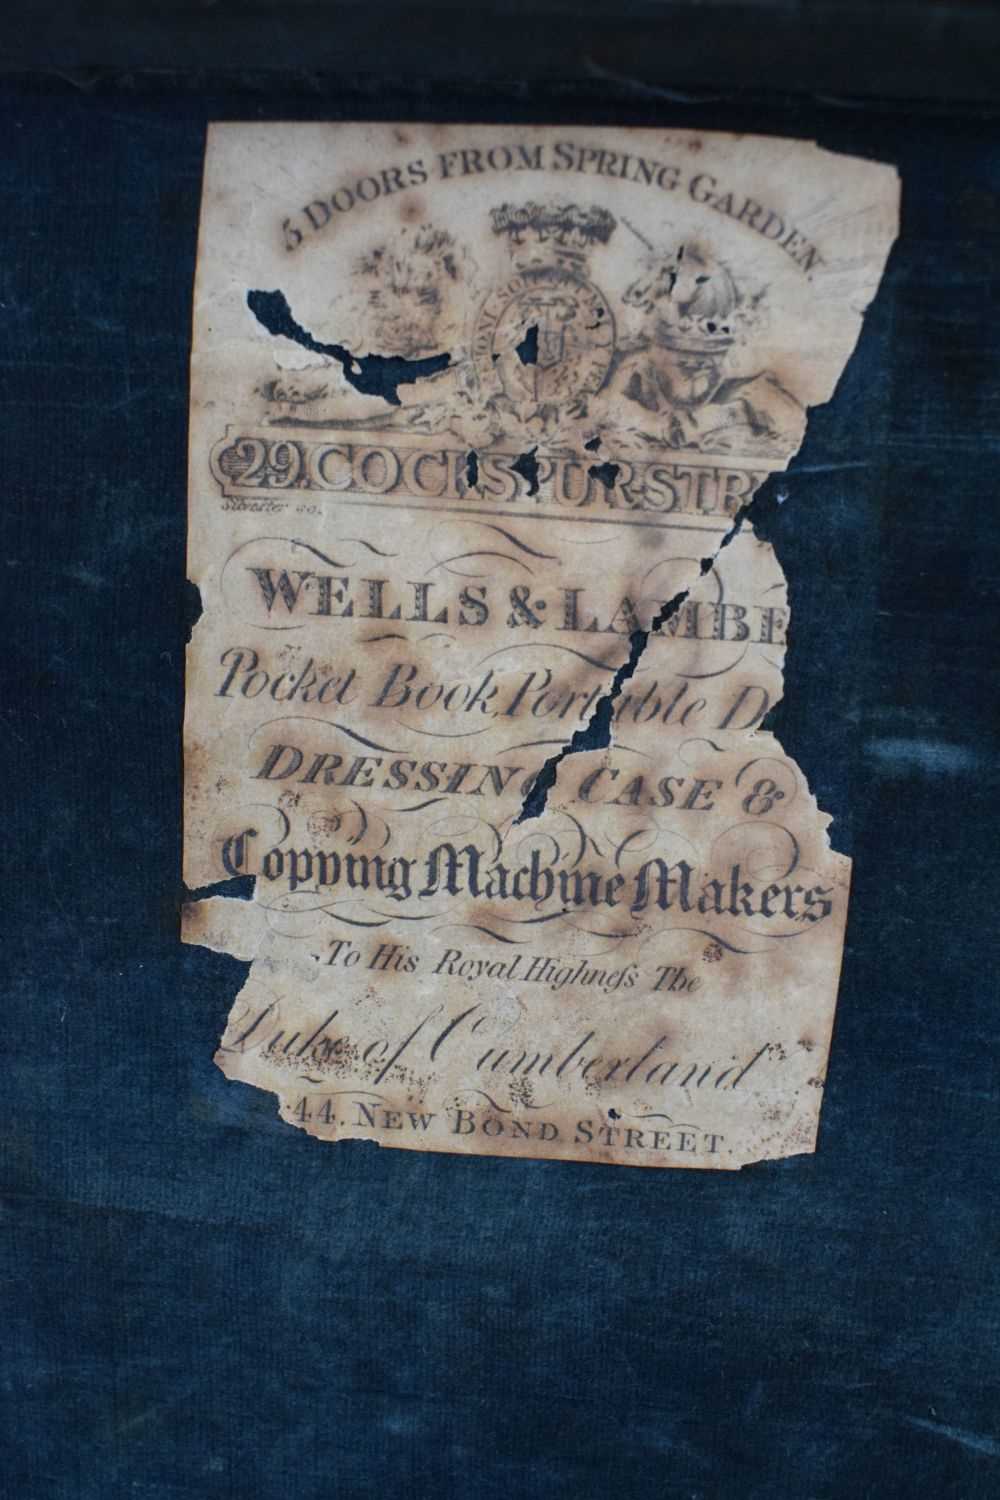 5 DOORS FROM SPRING GARDEN.
HONI SOIT QUI MAL Y PEN
29. COCKSPUR-STR
Silvester sc.
WELLS & LAMBE
Pocket Book, Portable D
DRESSING CASE &
Copying Machine Makers
To His Royal Highneſs The
Duke of Cumberland
44. NEW BOND STREET.